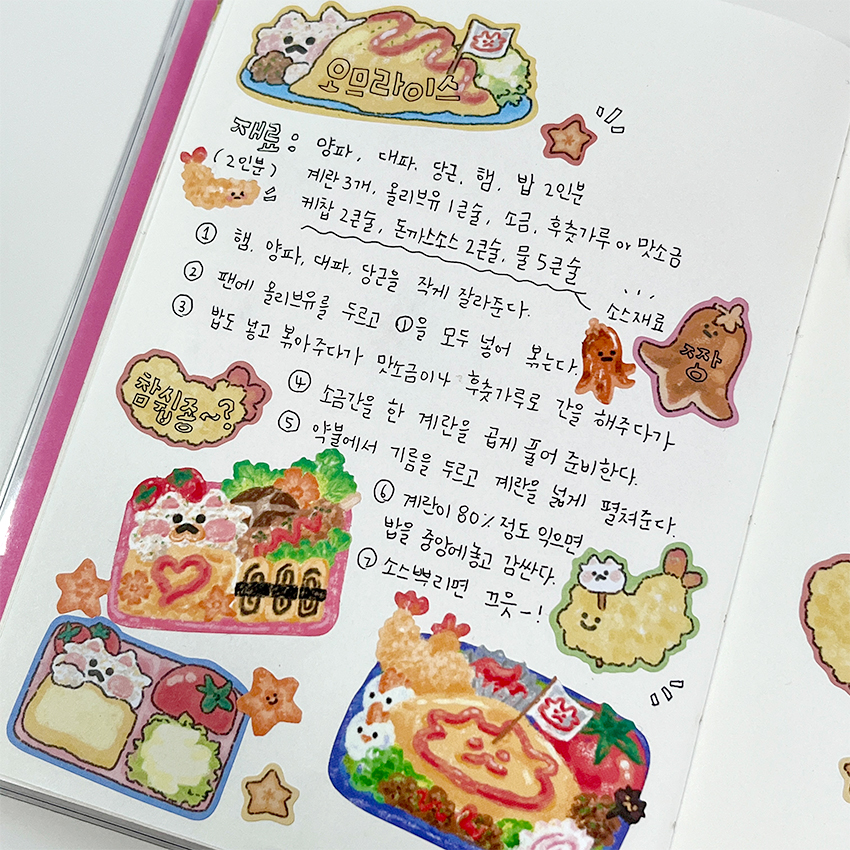 오므라이스
재료 : 양파, 대파, 당근, 햄, 밥 2인분
(2인분) 계란 3개, 올리브유 1큰술, 소금, 후춧가루 or 맛소금
케찹 2큰술, 돈까스소스 2큰술, 물 5큰술
소스재료
① 햄, 양파, 대파, 당근을 작게 잘라준다.
② 팬에 올리브유를 두르고 ①을 모두 넣어 볶는다.
③ 밥도 넣고 볶아주다가 맛소금이나 후춧가루로 간을 해주다가
짱
참쉽죵~?
④ 소금간을 한 계란을 곱게 풀어 준비한다.
⑤ 약불에서 기름을 두르고 계란을 넓게 펼쳐준다.
⑥ 계란이 80% 정도 익으면
밥을 중앙에놓고 감싼다.
⑦ 소스뿌리면 끄읏~!